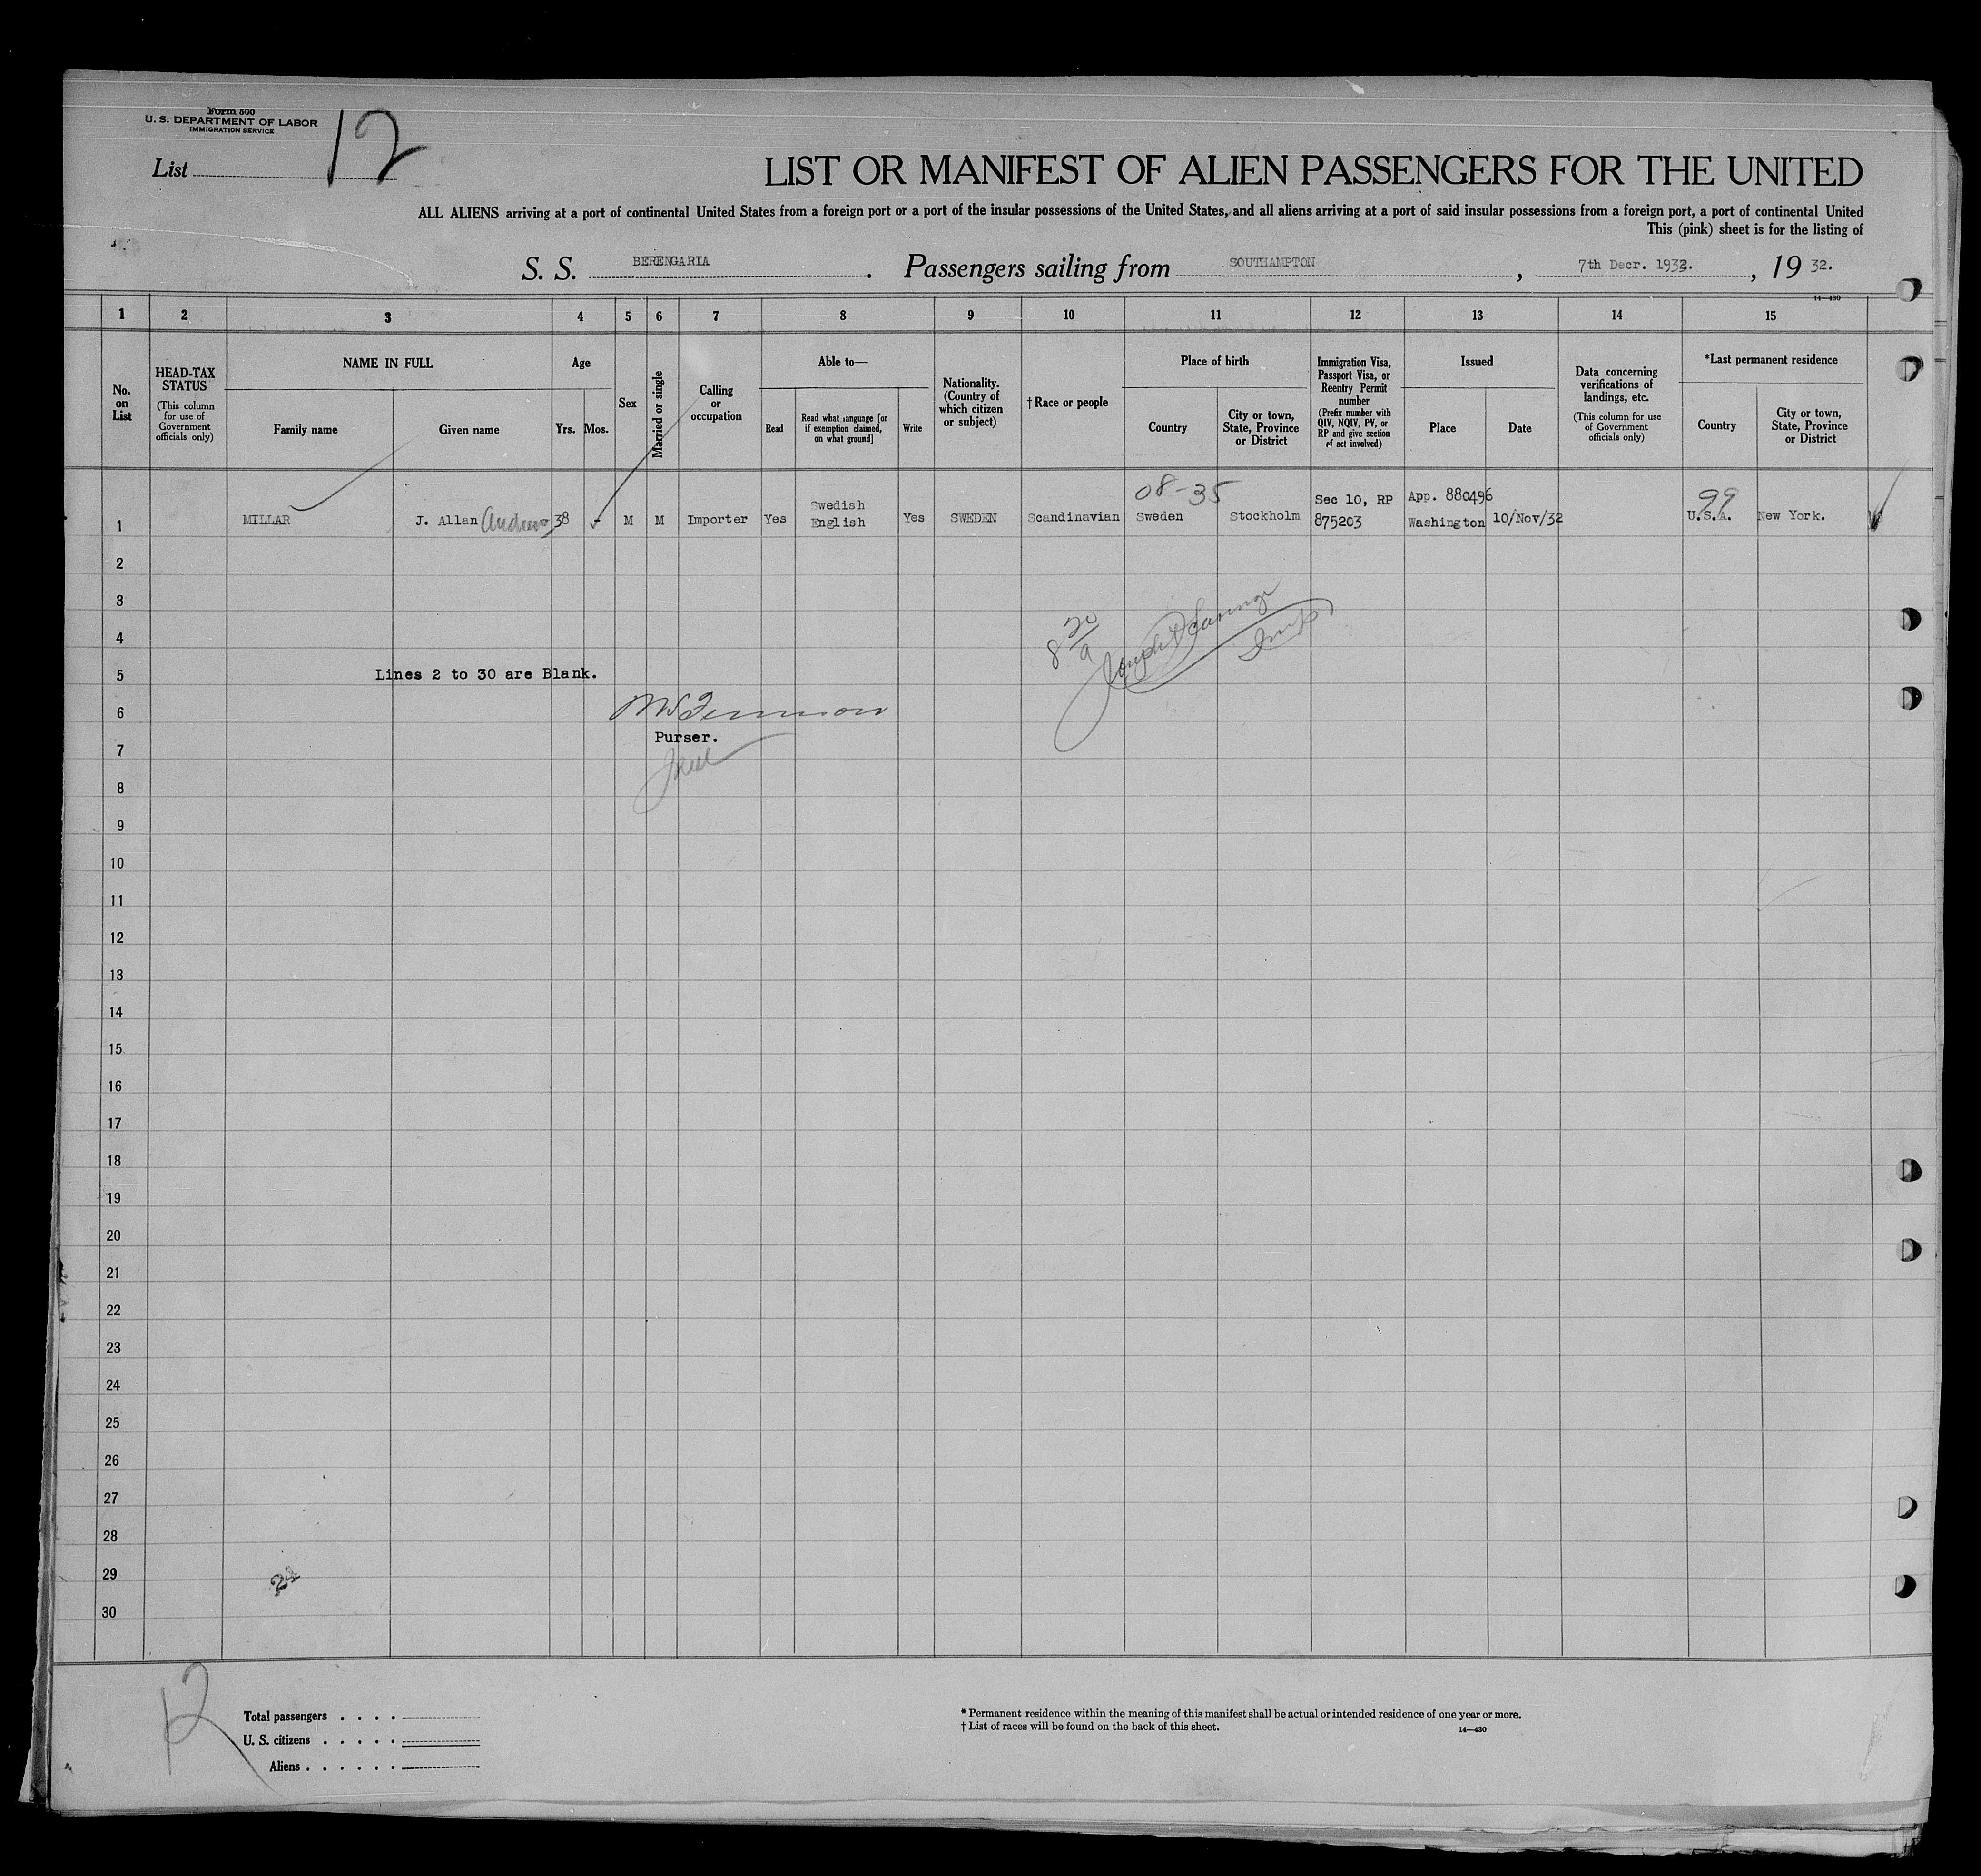 Form 500
U. S. DEPARTMENT OF LABOR
IMMIGRATION SERVICE
List 12
LIST OR MANIFEST OF ALIEN PASSENGERS FOR THE UNITED
ALL ALIENS arriving at a port of continental United States from a foreign port or a port of the insular possessions of the United States, and all aliens arriving at a port of said insular possessions from a foreign port, a port of continental United
This (pink) sheet is for the listing of
S. S. BERENGARIA. Passengers sailing from SOUTHAMPTON, 7th Decr. 1932., 19 32.
14—430
1 2 3 4 5 6 7 8 9 10 11 12 13 14 15
No. on List
HEAD-TAX STATUS
(This column for use of Government officials only)
NAME IN FULL
Family name
Given name
Age
Yrs. Mos.
Sex
Married or single
Calling or occupation
Able to—
Read
Read what language [or if exemption claimed, on what ground]
Write
Nationality. (Country of which citizen or subject)
†Race or people
Place of birth
Country
City or town, State, Province or District
Immigration Visa, Passport Visa, or Reentry Permit number
(Prefix number with QIV, NQIV, PV, or RP and give section of act involved)
Issued
Place
Date
Data concerning verifications of landings, etc.
(This column for use of Government officials only)
*Last permanent residence
Country
City or town, State, Province or District
08-35
99
1 MILLAR J. Allan Andrew 38 - M M Importer Yes Swedish English Yes SWEDEN Scandinavian Sweden Stockholm Sec 10, RP 875203 App. 880496 Washington 10/Nov/32 U.S.A. New York.
2
3
4
5 Lines 2 to 30 are Blank.
6
Purser.
7
8
9
10
11
12
13
14
15
16
17
18
19
20
21
22
23
24
25
26
27
28
29
24
30
12
Total passengers . . . .
U. S. citizens . . . . .
Aliens . . . . . .
* Permanent residence within the meaning of this manifest shall be actual or intended residence of one year or more.
† List of races will be found on the back of this sheet.
14—430